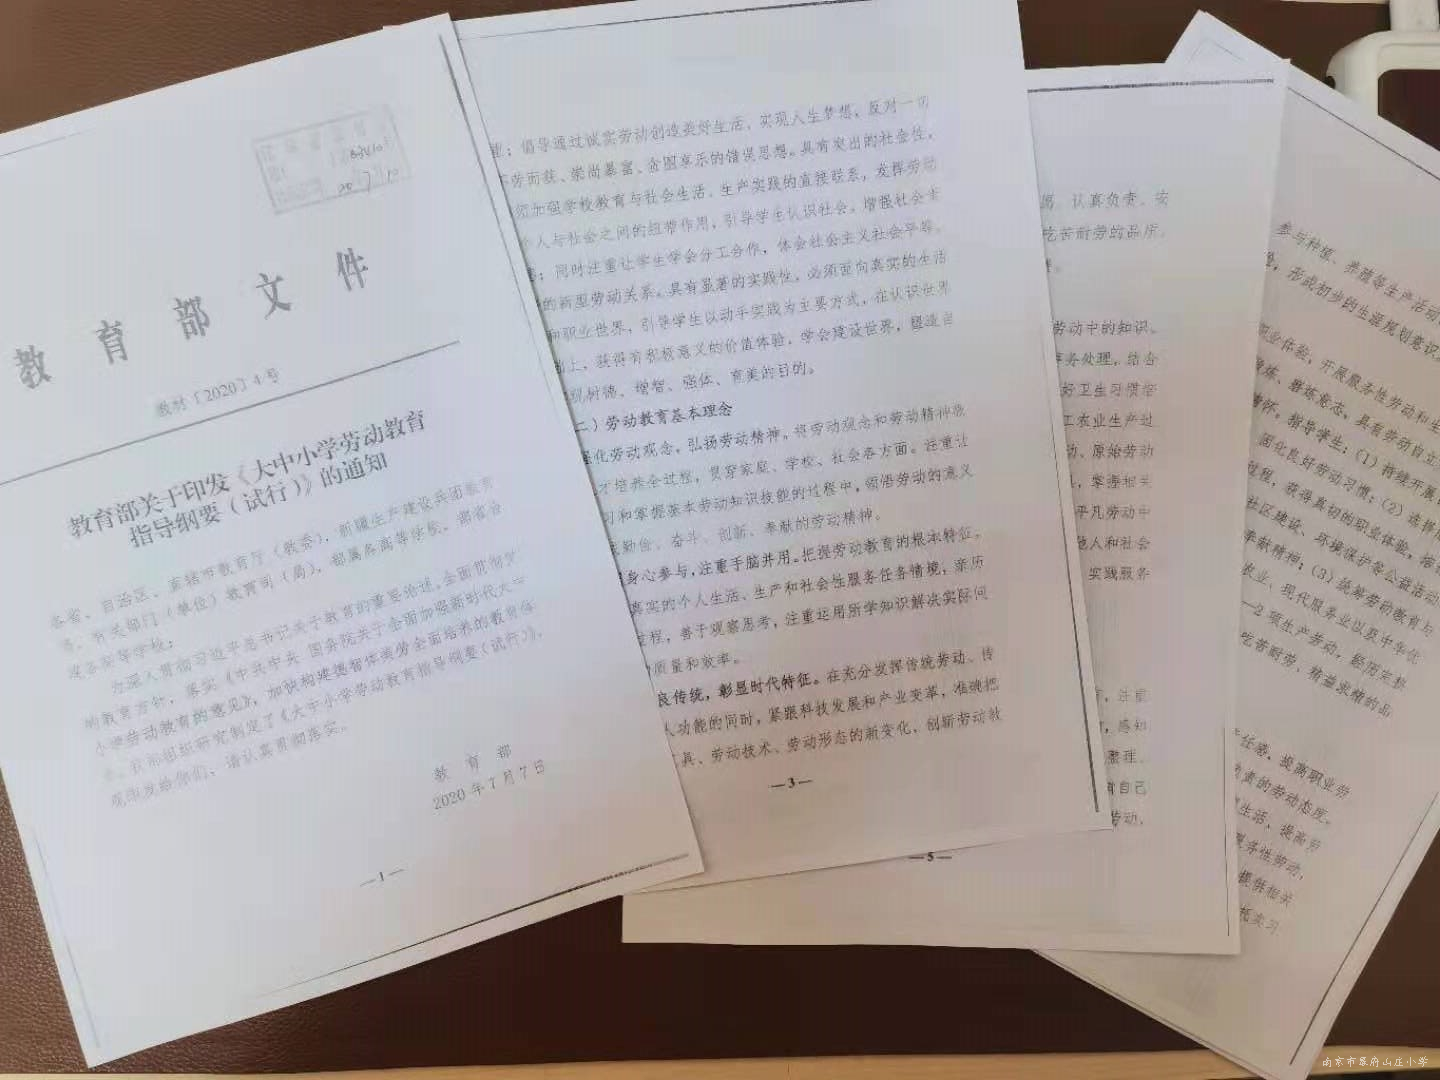 20 7 10
教育部文件
教材〔2020〕4号
教育部关于印发《大中小学劳动教育
指导纲要（试行）》的通知
各省、自治区、直辖市教育厅（教委），新疆生产建设兵团教育
局，有关部门（单位）教育司（局），部属各高等学校、部省合
建各高等学校：
为深入贯彻习近平总书记关于教育的重要论述，全面贯彻党
的教育方针，落实《中共中央 国务院关于全面加强新时代大中
小学劳动教育的意见》，加快构建德智体美劳全面培养的教育体
系，我部组织研究制定了《大中小学劳动教育指导纲要（试行）》，
现印发给你们，请认真贯彻落实。
教育部
2020年7月7日
—1—
；倡导通过诚实劳动创造美好生活、实现人生梦想，反对一切
劳而获、崇尚暴富、贪图享乐的错误思想。具有突出的社会性，
须加强学校教育与社会生活、生产实践的直接联系，发挥劳动
个人与社会之间的纽带作用，引导学生认识社会，增强社会责
；同时注重让学生学会分工合作，体会社会主义社会平等、
的新型劳动关系。具有显著的实践性，必须面向真实的生活
和职业世界，引导学生以动手实践为主要方式，在认识世界
上，获得有积极意义的价值体验，学会建设世界，塑造自
现树德、增智、强体、育美的目的。
二）劳动教育基本理念
强化劳动观念，弘扬劳动精神。将劳动观念和劳动精神教
才培养全过程，贯穿家庭、学校、社会各方面。注重让
习和掌握基本劳动知识技能的过程中，领悟劳动的意义
勤俭、奋斗、创新、奉献的劳动精神。
身心参与，注重手脑并用。把握劳动教育的根本特征，
真实的个人生活、生产和社会性服务任务情境，亲历
过程，善于观察思考，注重运用所学知识解决实际问
质量和效率。
良传统，彰显时代特征。在充分发挥传统劳动、传
人功能的同时，紧跟科技发展和产业变革，准确把
工具、劳动技术、劳动形态的新变化，创新劳动教
—3—
愿、认真负责、安
吃苦耐劳的品质。
劳动中的知识、
事务处理，结合
好卫生习惯培
工农业生产过
动、原始劳动
，掌握相关
平凡劳动中
他人和社会
实践服务
，注重
，感知
整理、
自己
劳动，
—5—
参与种植、养殖等生产活动
，形成初步的生涯规划意识
职业体验，开展服务性劳动和生
锻炼、磨炼意志，具有劳动自立
情怀。指导学生：（1）持续开展
固化良好劳动习惯；（2）选择
过程，获得真切的职业体验，培
社区建设、环境保护等公益活动
奉献精神；（3）统筹劳动教育与
农业、现代服务业以及中华优
—2项生产劳动，经历完整
吃苦耐劳、精益求精的品
责任感，提高职业劳
负责的劳动态度。
生活，提高劳
服务性劳动，
提供相关
托实习
南京市翠府山庄小学